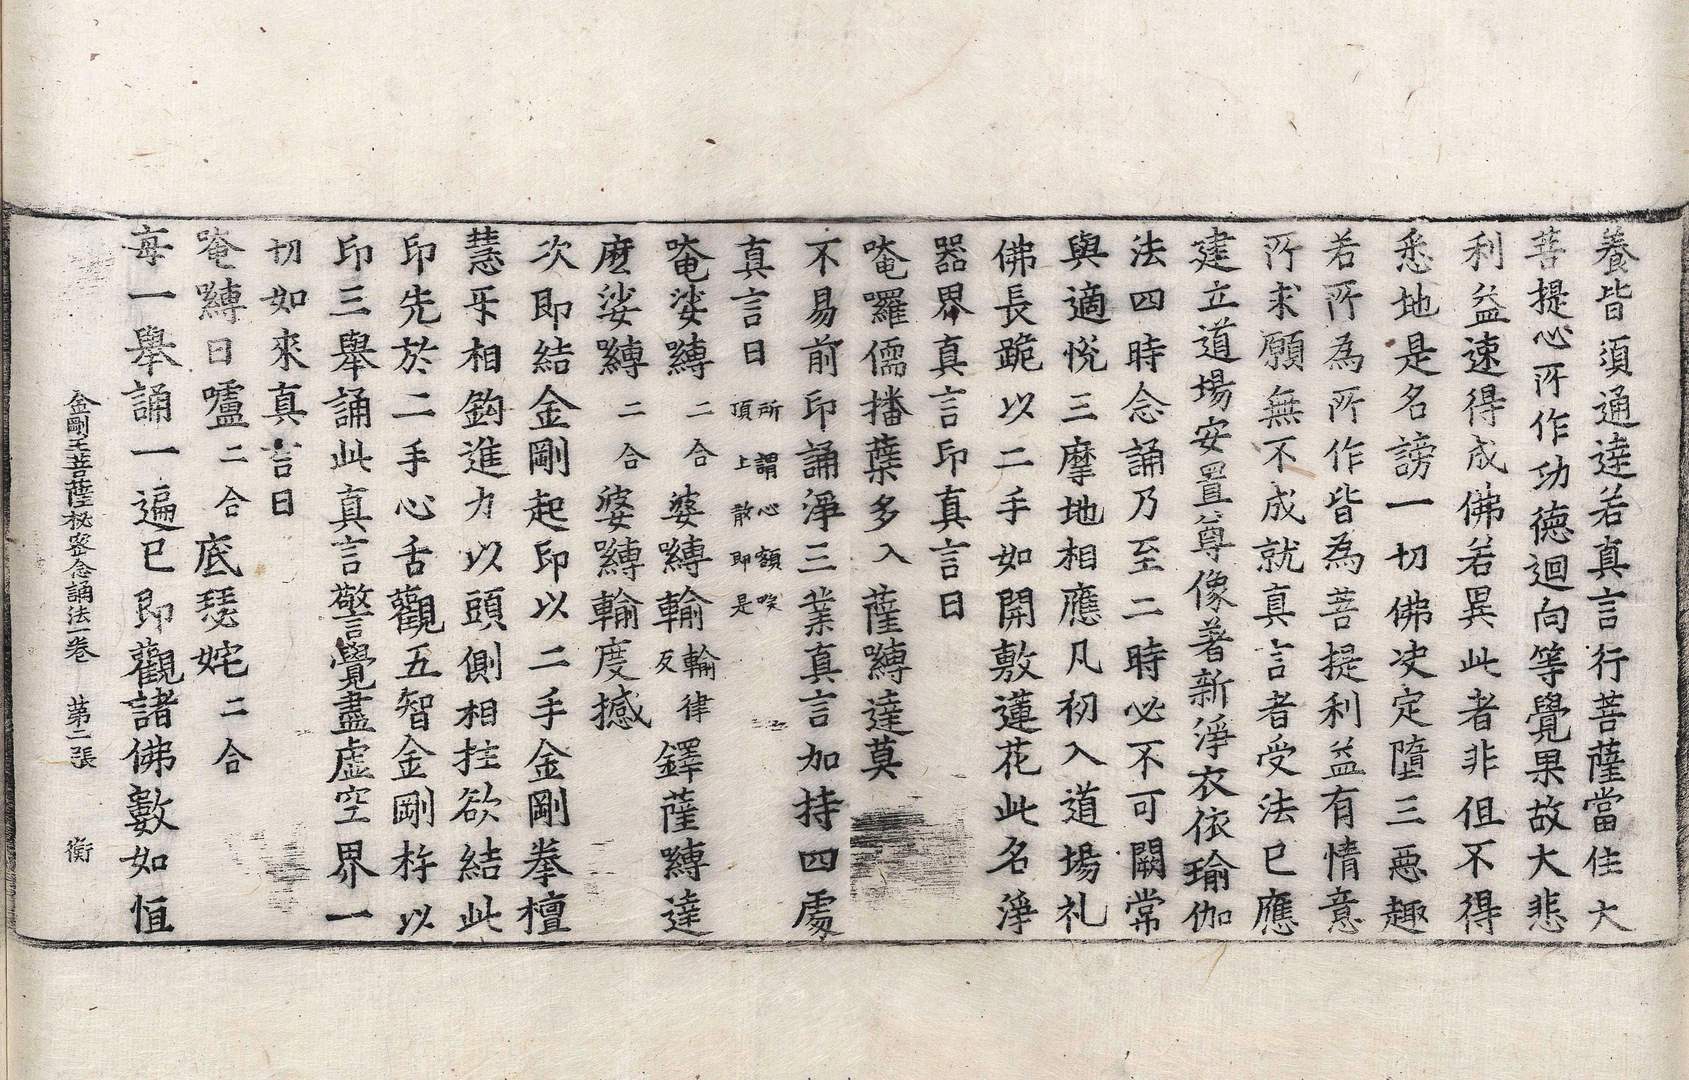 養皆須通達若真言行菩薩當住大
菩提心所作功德迴向等覺果故大悲
利益速得成佛若異此者非但不得
悉地是名謗一切佛決定墮三惡趣
若所為所作皆為菩提利益有情意
所求願無不成就真言者受法已應
建立道場安置尊像著新淨衣依瑜伽
法四時念誦乃至二時必不可闕常
與適悅三摩地相應凡初入道場礼
佛長跪以二手如開敷蓮花此名淨
器界真言印真言曰
唵囉儒播蘖多入薩嚩達莫
不易前印誦淨三業真言加持四處
真言曰 所謂心額喉頂上散即是
唵娑嚩二合婆嚩輸輪律反鐸薩嚩達
麼娑嚩二合婆嚩輸度撼
次即結金剛起印以二手金剛拳檀
慧牙相鉤進力以頭側相拄欲結此
印先於二手心舌觀五智金剛杵以
印三舉誦此真言警覺盡虛空界一
切如來真言曰
唵嚩日嚧二合底瑟姹二合
每一舉誦一遍已即觀諸佛數如恒
金剛王菩薩秘密念誦法一卷 第二張 衡